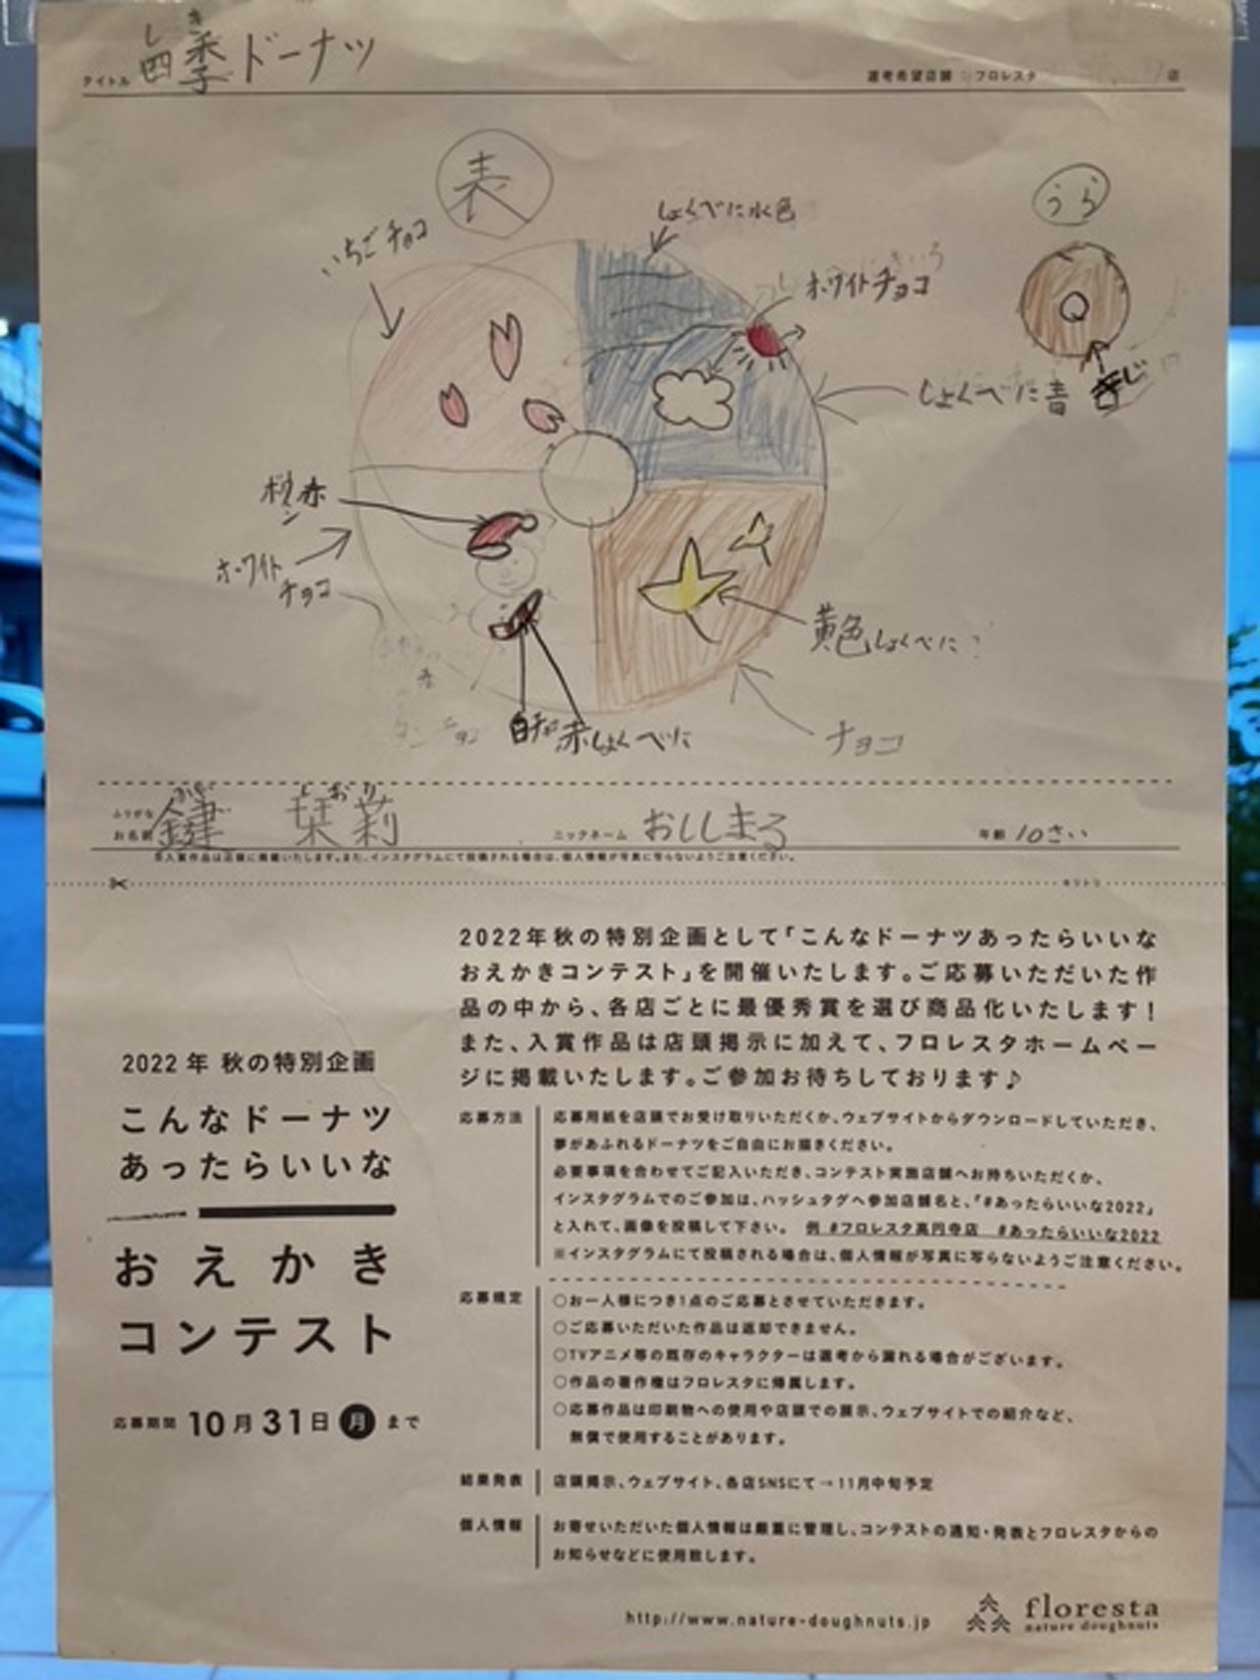 しき
タイトル 四季ドーナツ
選考希望店舗 フロレスタ 店
表
うら
いちごチョコ
しょくべに水色
ホワイトチョコ
しょくべに青
きじ
赤
ホワイト
チョコ
黄色しょくべに
白チョコ
赤しょくべに
チョコ
かぎ しおり
ふりがな
お名前 鍵 栞莉
ニックネーム おししまる
年齢 10さい
※入賞作品は店頭に掲載いたします。また、インスタグラムにて投稿される場合は、個人情報が写真に写らないようご注意ください。
キリトリ
2022年秋の特別企画として「こんなドーナツあったらいいな
おえかきコンテスト」を開催いたします。ご応募いただいた作
品の中から、各店ごとに最優秀賞を選び商品化いたします!
また、入賞作品は店頭掲示に加えて、フロレスタホームペー
ジに掲載いたします。ご参加お待ちしております♪
2022年 秋の特別企画
こんなドーナツ
あったらいいな
おえかき
コンテスト
応募期間 10月31日月まで
応募方法
応募用紙を店頭でお受け取りいただくか、ウェブサイトからダウンロードしていただき、
夢があふれるドーナツをご自由にお描きください。
必要事項を合わせてご記入いただき、コンテスト実施店舗へお持ちいただくか、
インスタグラムでのご参加は、ハッシュタグへ参加店舗名と、「#あったらいいな2022」
と入れて、画像を投稿して下さい。 例 #フロレスタ高円寺店 #あったらいいな2022
※インスタグラムにて投稿される場合は、個人情報が写真に写らないようご注意ください。
応募規定
○お一人様につき1点のご応募とさせていただきます。
○ご応募いただいた作品は返却できません。
○TVアニメ等の既存のキャラクターは選考から漏れる場合がございます。
○作品の著作権はフロレスタに帰属します。
○応募作品は印刷物への使用や店頭での展示、ウェブサイトでの紹介など、
無償で使用することがあります。
結果発表
店頭掲示、ウェブサイト、各店SNSにて→11月中旬予定
個人情報
お寄せいただいた個人情報は厳重に管理し、コンテストの通知・発表とフロレスタからの
お知らせなどに使用致します。
http://www.nature-doughnuts.jp
floresta
nature doughnuts